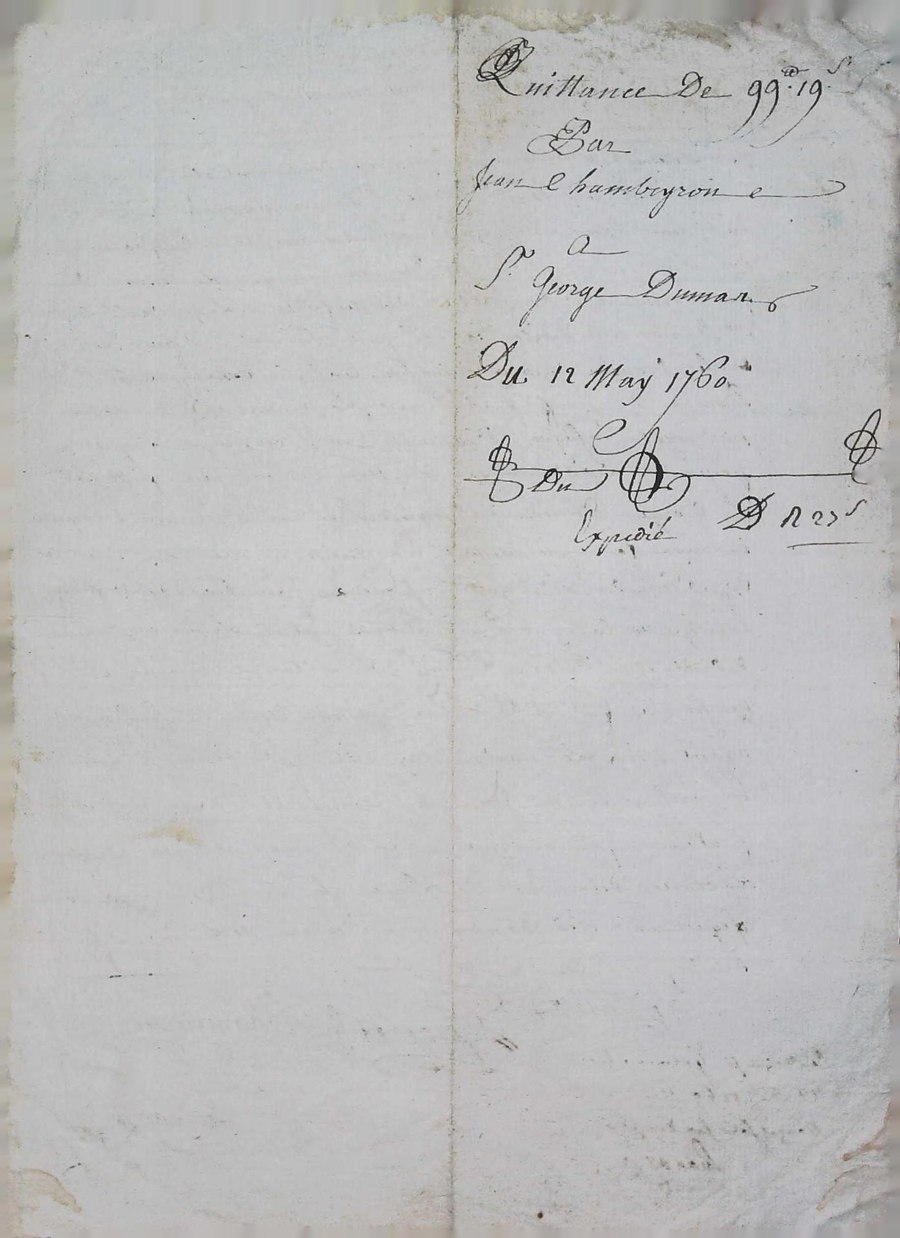 Quittance De 99.tt 19.s
Par
Jean Chambeyron
a
Sr George Dumas
Du 12 May 1760
Du
Expedié D R 27s